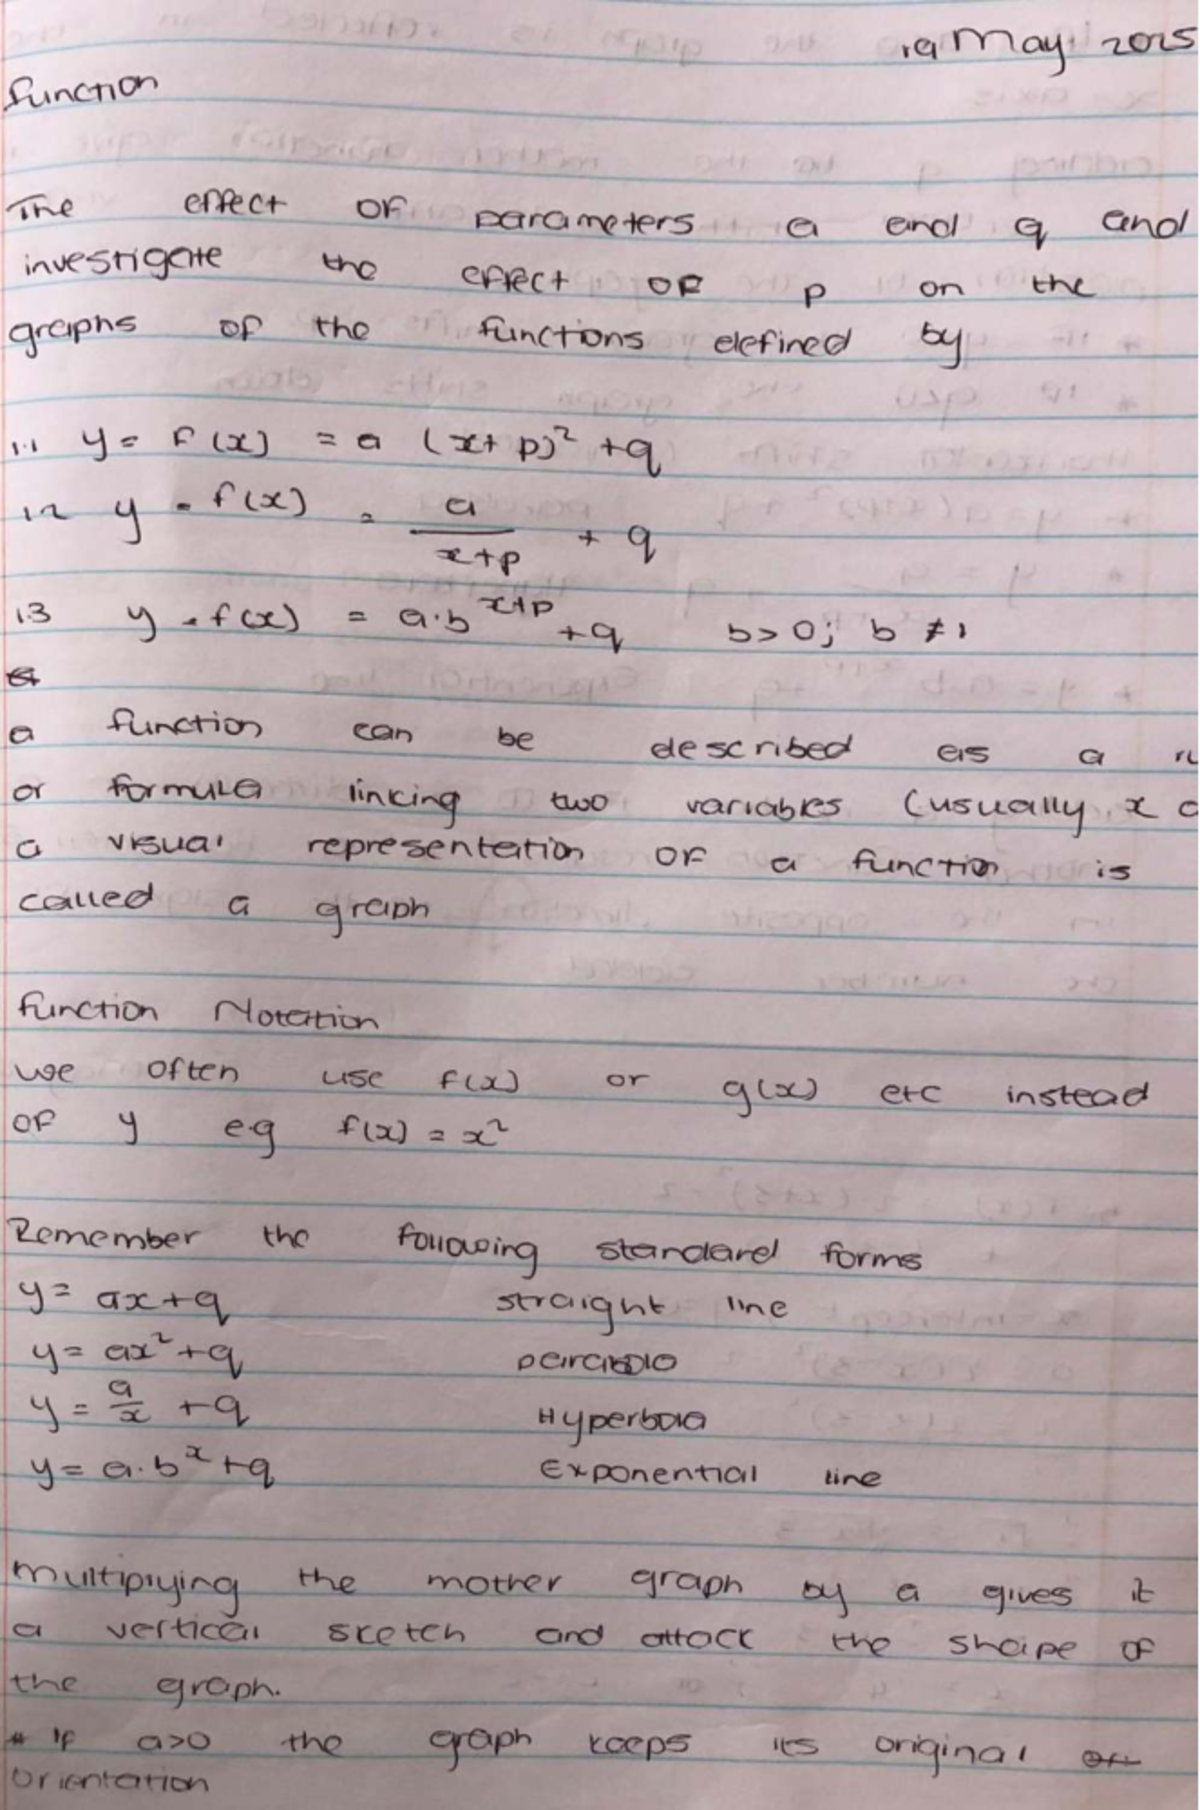 19 May 2025
function
The effect of parameters a and q and
investigate the effect of p on the
graphs of the functions defined by
1.1 y = f(x) = a (x+p)² +q
1.2 y = f(x) = a/(x+p) + q
1.3 y = f(x) = a·b^(x+p) +q b>0; b ≠1
a function can be described as a
or formula lincing two variables (usually x
a visual representation of a function is
called a graph
function Notation
we often use f(x) or g(x) etc instead
of y eg f(x) = x²
Remember the following standard forms
y= ax+q straight line
y= ax²+q parabola
y = a/x +q Hyperbola
y= a·b^x+q Exponential line
multiplying the mother graph by a gives it
a vertical sketch and attack the shape of
the graph.
* if a>0 the graph keeps its original
orientation